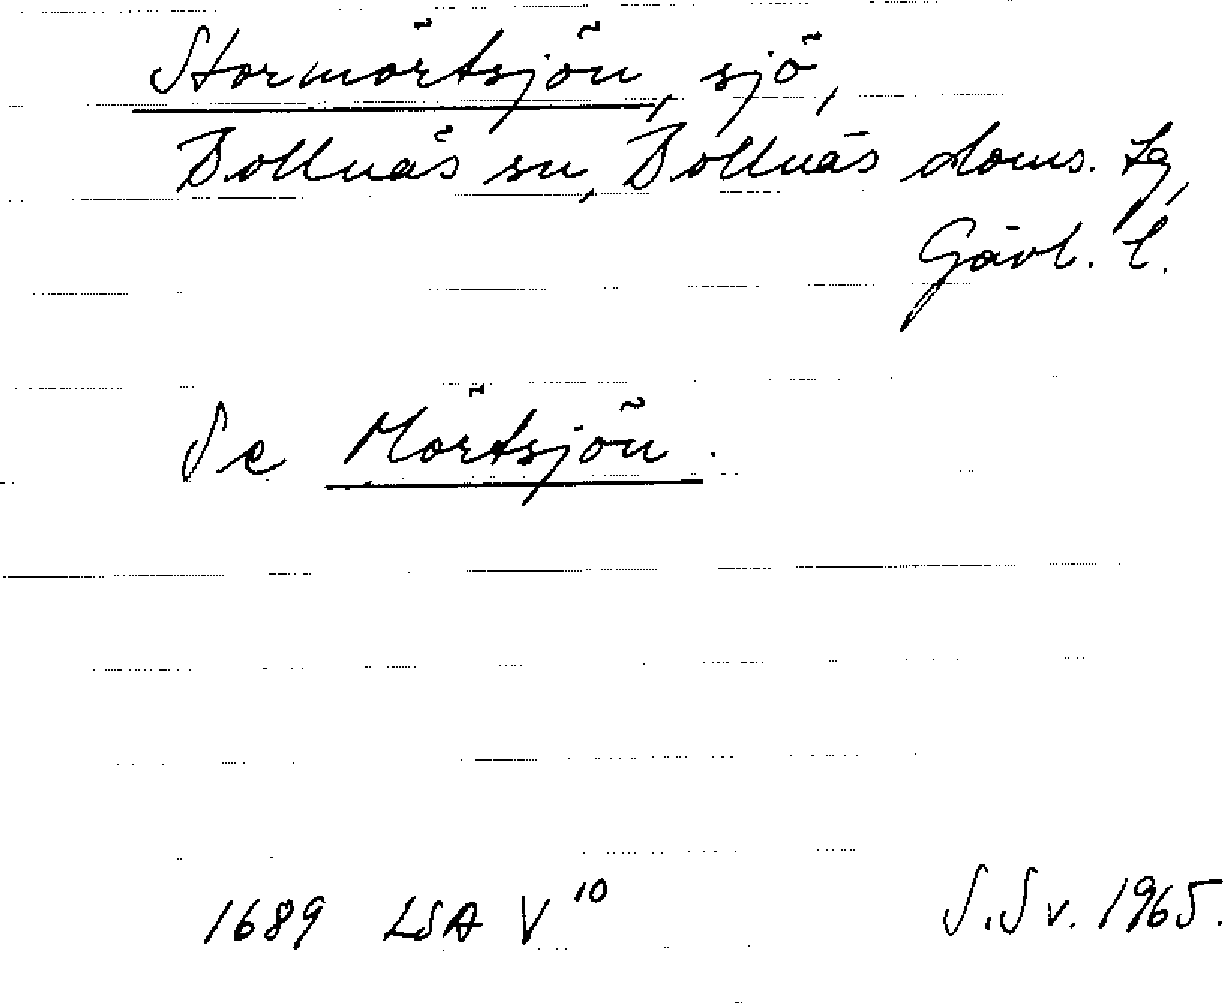 Stormörtsjön, sjö,
Bollnäs sn, Bollnäs doms. lg,
Gävl. l.
Se Mörtsjön.
1689 LSA V 10
S. Sv. 1965.